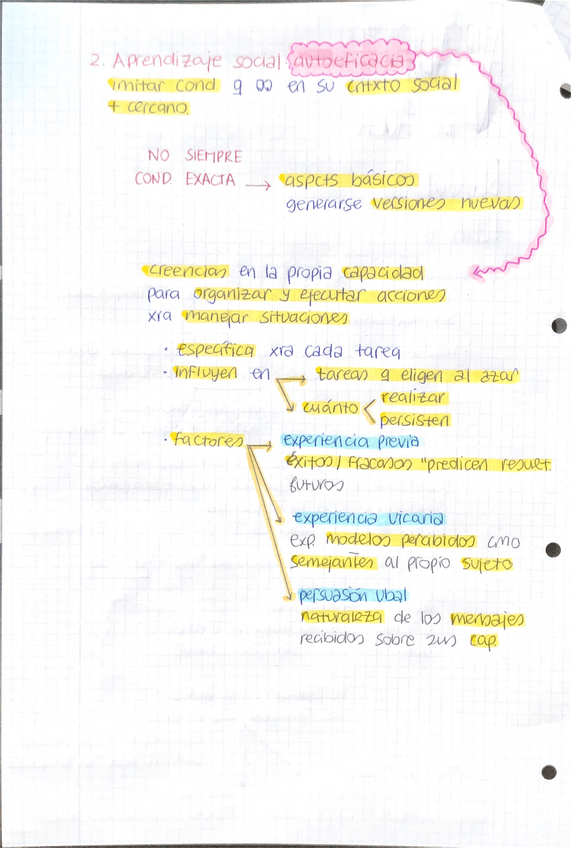 2. Aprendizaje social autoeficacia
imitar cond. q oo en su cntxto social
+ cercano.
NO SIEMPRE
COND. EXACTA → aspcts básicos
generarse versiones nuevas
creencias en la propia capacidad
para organizar y ejecutar acciones
xra manejar situaciones
· específica xra cada tarea
· influyen en → tareas q eligen al azar
cuánto < realizar
persisten
· factores → experiencia previa
éxitos / fracasos "predicen result.
futuros
experiencia vicaria
exp modelos percibidos cmo
semejantes al propio sujeto
persuasión vbal
naturaleza de los mensajes
recibidos sobre sus cap.